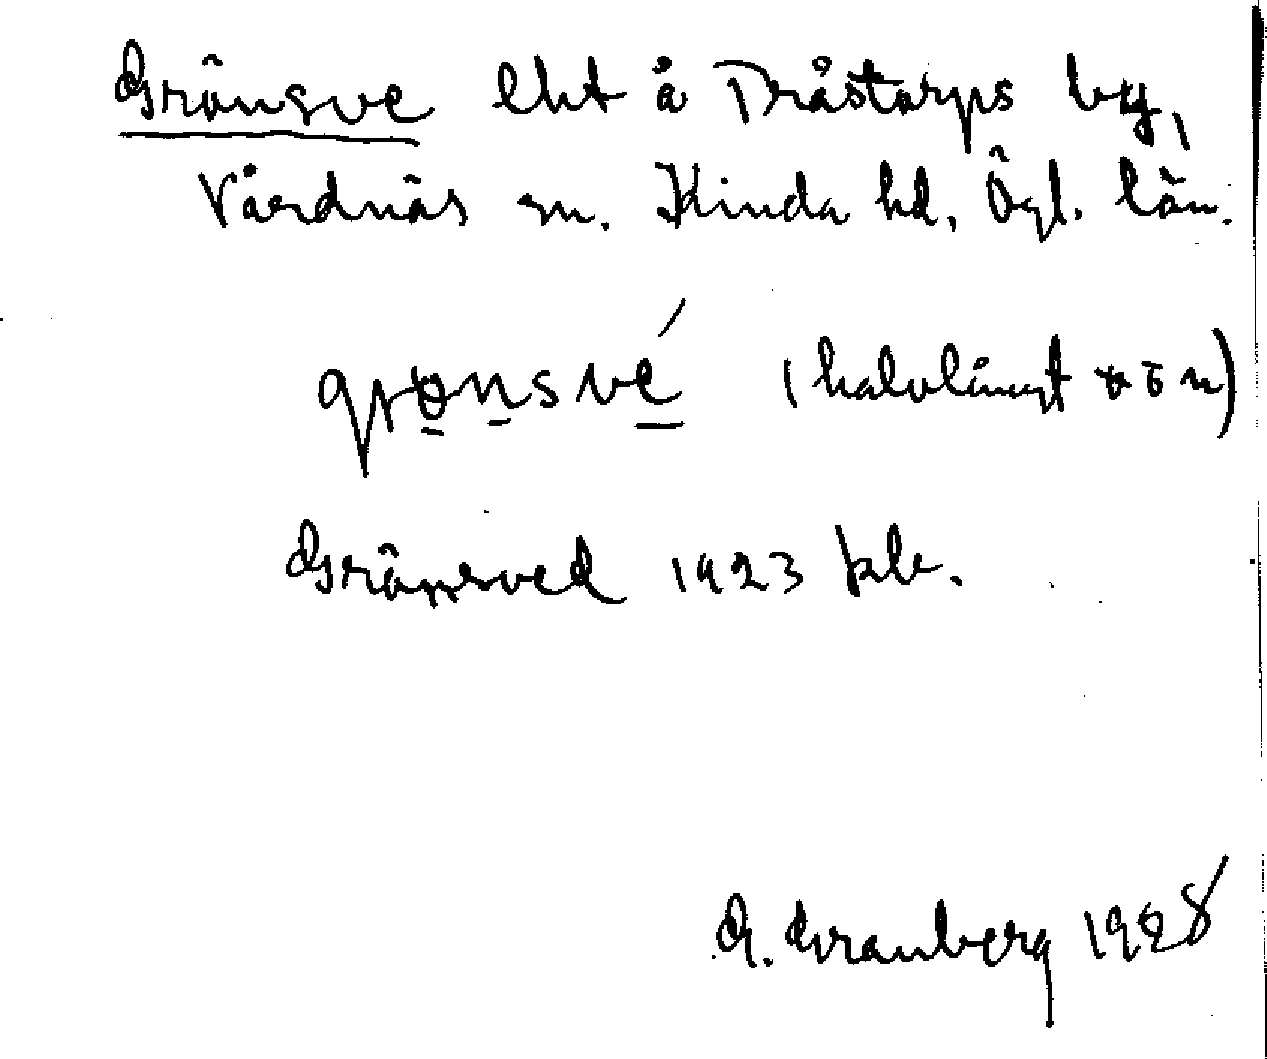 Grönsve lht å Dråstorps by,
Vårdnäs sn. Kinda hd. Ögl. län.
grønsvé (halvlångt ø o n)
Grönsved 1923 kbr.
G. Granberg 1928